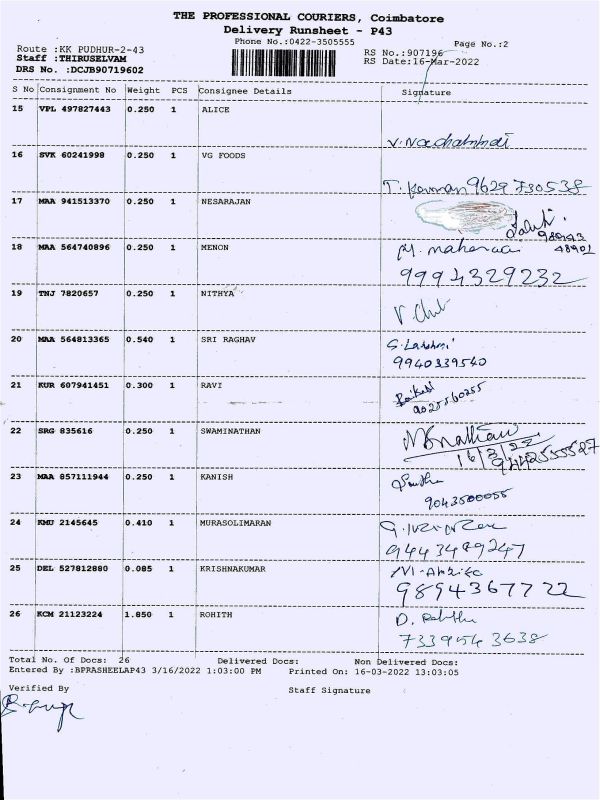 THE PROFESSIONAL COURIERS, Coimbatore
Delivery Runsheet - P43
Phone No.:0422-3505555
Page No.:2
Route :KK PUDHUR-2-43
RS No.:907196
Staff :THIRUSELVAM
RS Date:16-Mar-2022
DRS No. :DCJB90719602
S No Consignment No Weight PCS Consignee Details Signature
15 VPL 497827443 0.250 1 ALICE
16 SVK 60241998 0.250 1 VG FOODS
T. 9629 730538
17 MAA 941513370 0.250 1 NESARAJAN
18 MAA 564740896 0.250 1 MENON
9994329232
19 TNJ 7820657 0.250 1 NITHYA
20 MAA 564813365 0.540 1 SRI RAGHAV
S. Lakshmi
9940339540
21 KUR 607941451 0.300 1 RAVI
9025560255
22 SRG 835616 0.250 1 SWAMINATHAN
16/3/22
23 MAA 857111944 0.250 1 KANISH
9043500055
24 KMU 2145645 0.410 1 MURASOLIMARAN
9443489247
25 DEL 527812880 0.085 1 KRISHNAKUMAR
9894367722
26 KCM 21123224 1.850 1 ROHITH
7339543638
Total No. Of Docs: 26 Delivered Docs: Non Delivered Docs:
Entered By :BPRASHEELAP43 3/16/2022 1:03:00 PM Printed On: 16-03-2022 13:03:05
Verified By Staff Signature